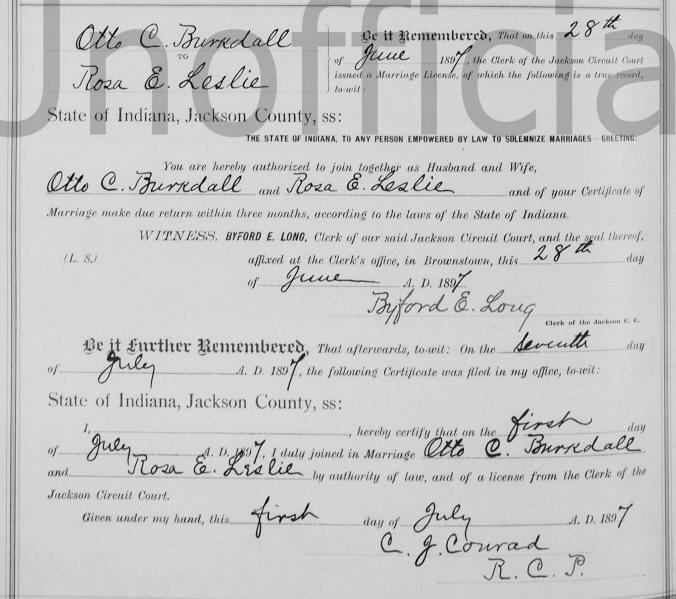 Unofficial
Otto C. Burkdall
TO
Rosa E. Leslie
Be it Remembered, That on this 28th day
of June 1897, the Clerk of the Jackson Circuit Court
issued a Marriage License, of which the following is a true record,
to-wit:
State of Indiana, Jackson County, ss:
THE STATE OF INDIANA, TO ANY PERSON EMPOWERED BY LAW TO SOLEMNIZE MARRIAGES—GREETING:
You are hereby authorized to join together as Husband and Wife,
Otto C. Burkdall and Rosa E. Leslie and of your Certificate of
Marriage make due return within three months, according to the laws of the State of Indiana.
WITNESS, BYFORD E. LONG, Clerk of our said Jackson Circuit Court, and the seal thereof,
(L. S.) affixed at the Clerk's office, in Brownstown, this 28th day
of June A. D. 1897
Byford E. Long
Clerk of the Jackson C. C.
Be it Further Remembered, That afterwards, to-wit: On the seventh day
of July A. D. 1897, the following Certificate was filed in my office, to-wit:
State of Indiana, Jackson County, ss:
I, , hereby certify that on the first day
of July A. D. 1897, I duly joined in Marriage Otto C. Burkdall
and Rosa E. Leslie by authority of law, and of a license from the Clerk of the
Jackson Circuit Court.
Given under my hand, this first day of July A. D. 1897
C. J. Conrad
R. C. P.